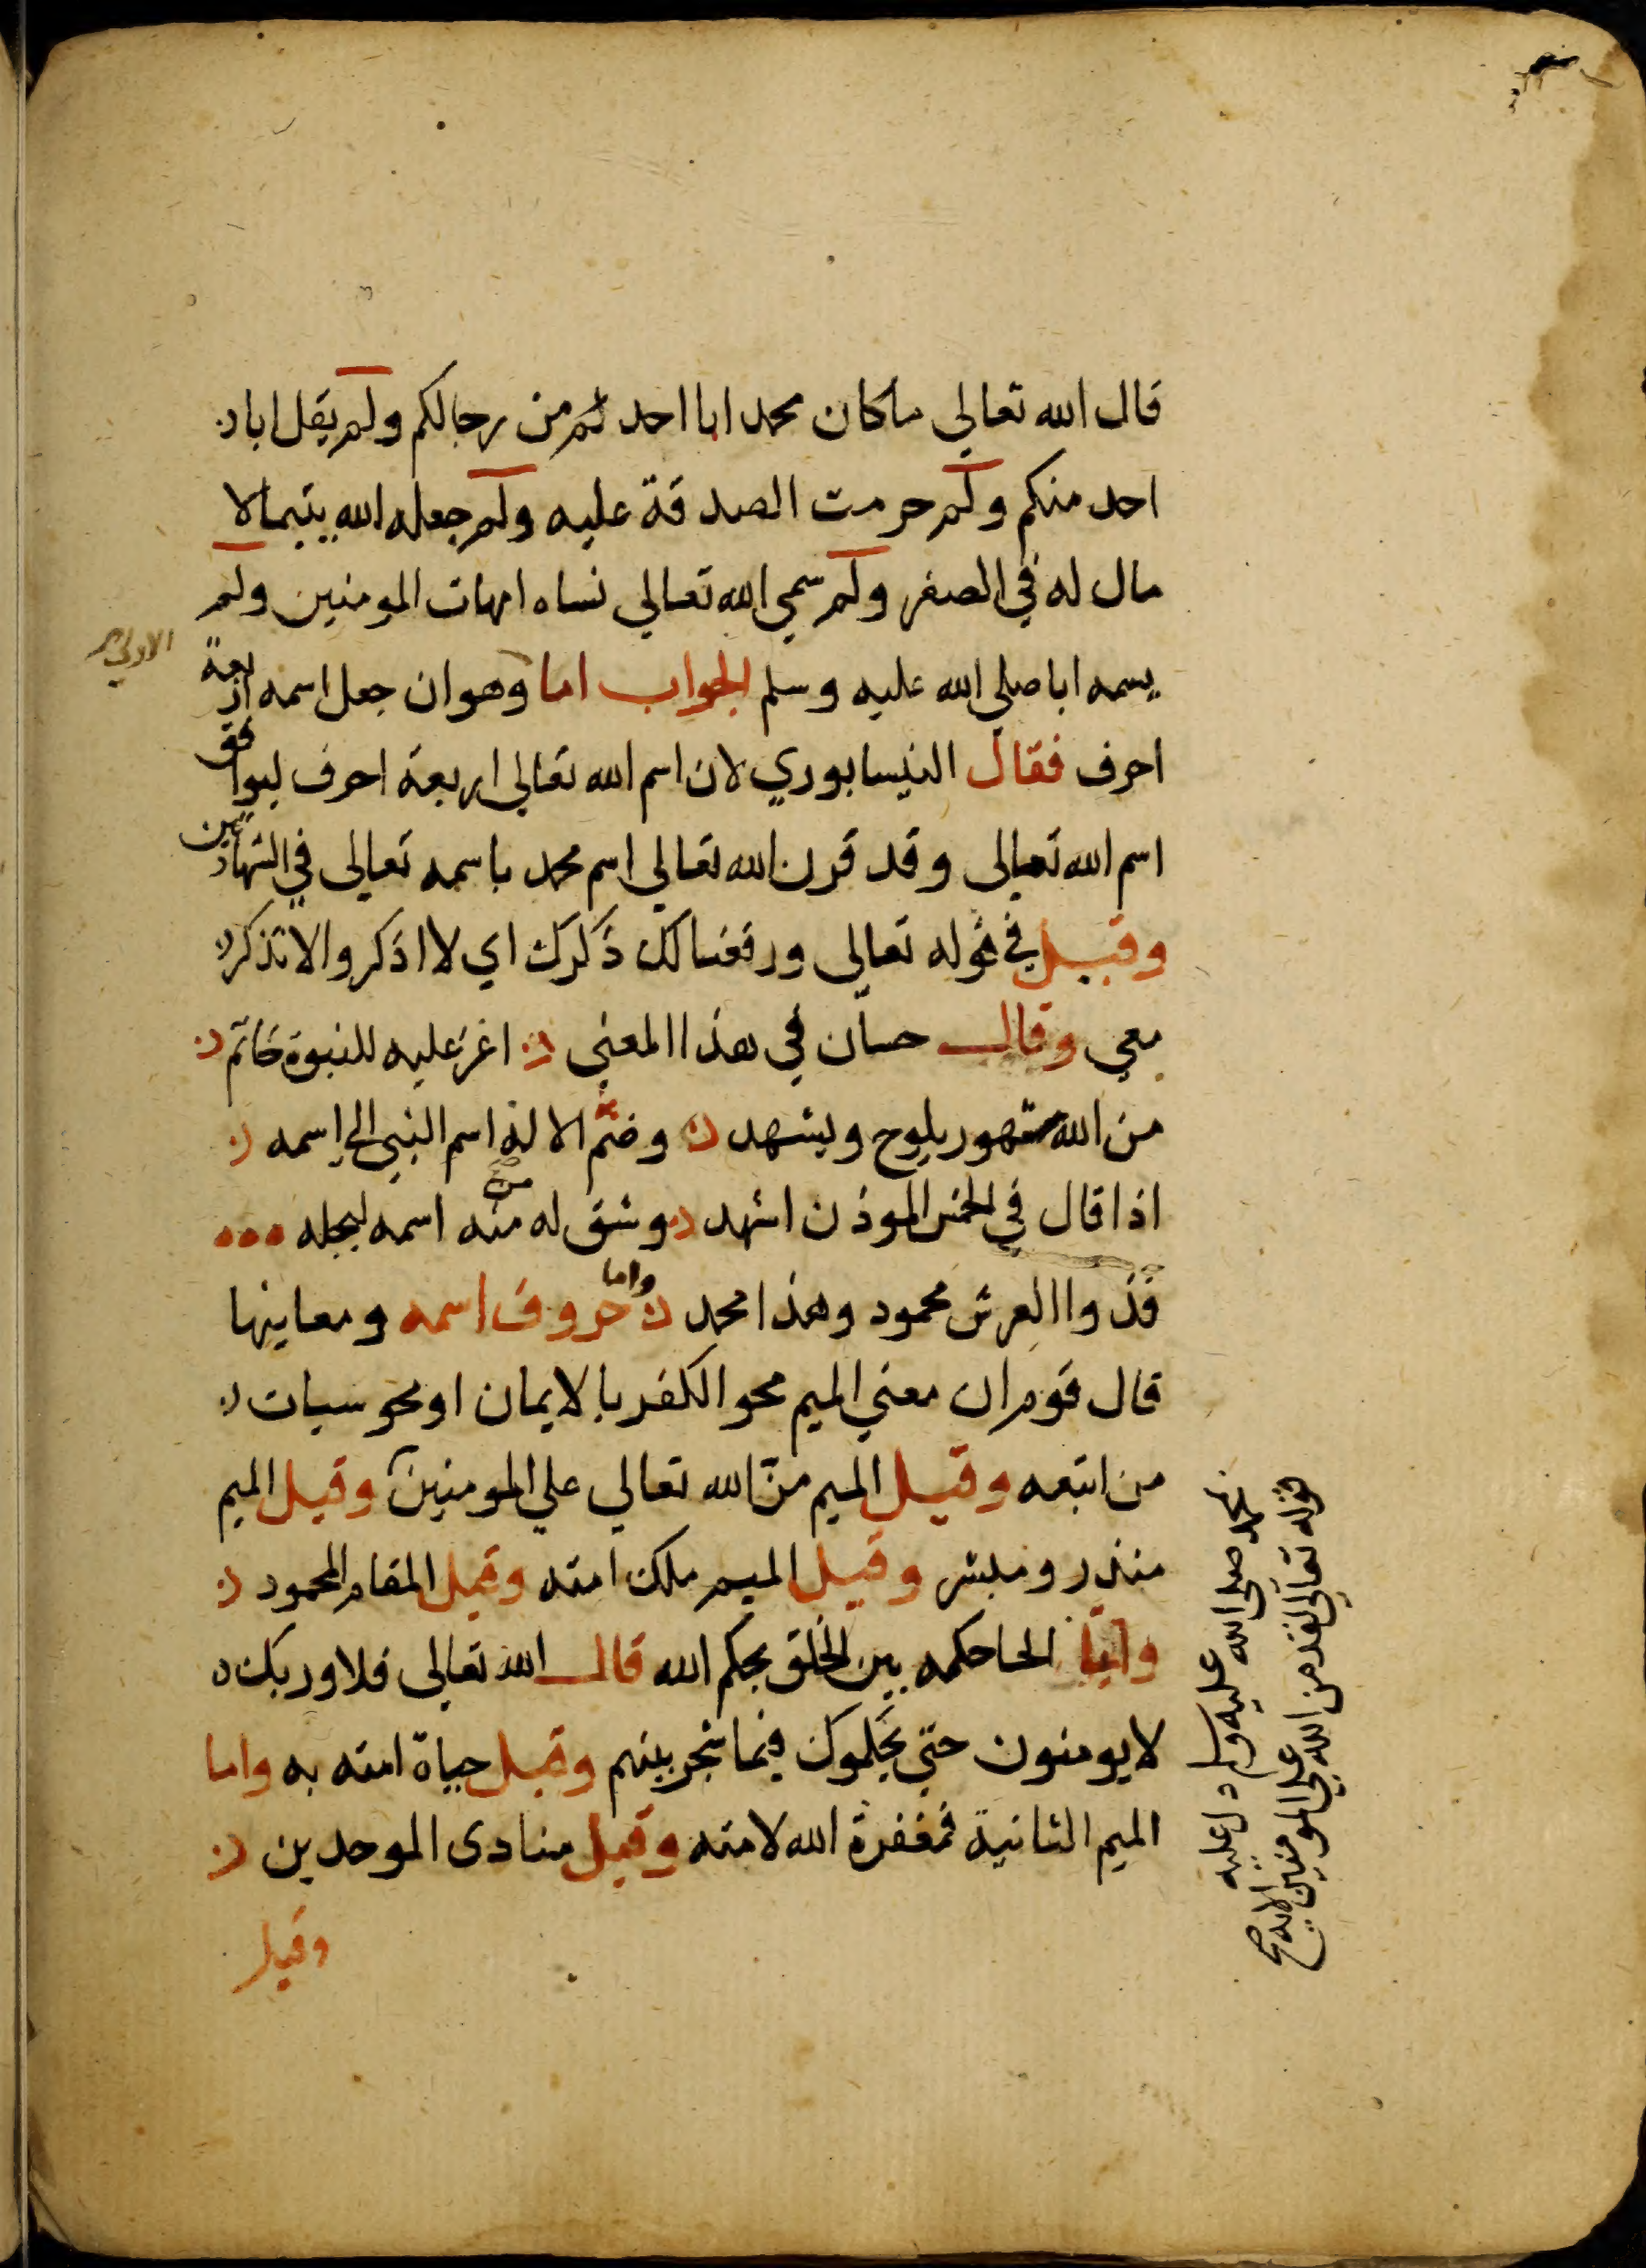 قال الله تعالي ماكان محمد ابا احد من رجالكم ولم يقل ابا
احد منكم ولم حرمت الصدقة عليه ولم جعله الله يتيما لا
مال له في الصغر ولم سمي الله تعالي نساه امهات المومنين ولم
يسمه ابا صلي الله عليه وسلم الجواب اما وهو ان جعل اسمه اربعة
احرف فقال النيسابوري لان اسم الله تعالي اربعة احرف ليوافق
اسم الله تعالى وقد قرن الله تعالي اسم محمد باسمه تعالى في الشهادتين
وقيل في قوله تعالى ورفعنا لك ذكرك اي لا اذكر والا تذكر
معي وقال حسان في هذا المعني اغر عليه للنبوة خاتم
من الله مشهور يلوح ويشهد وضم الاله اسم النبي الي اسمه
اذا قال في الخمس الموذن اشهد وشق له من اسمه ليجله
فذوا العرش محمود وهذا محمد واما حروف اسمه ومعاينها
قال قوم ان معني الميم محو الكفر بالايمان او محو سيات
من اتبعه وقيل الميم من الله تعالي علي المومنين وقيل الميم
منذر ومبشر وقيل الميم ملك امته وقيل المقام المحمود
واما الحا حكمه بين الخلق بحكم الله قال الله تعالى فلا وربك
لا يومنون حتي يحكموك فيما شجر بينهم وقيل حياة امته به واما
الميم الثانية فمغفرة الله لامته وقيل منادى الموحدين
وقيل
الاولي
قوله تعالي لقد من الله علي المومنين الايه صح
محمد صلي الله عليه وسلم دل عليه